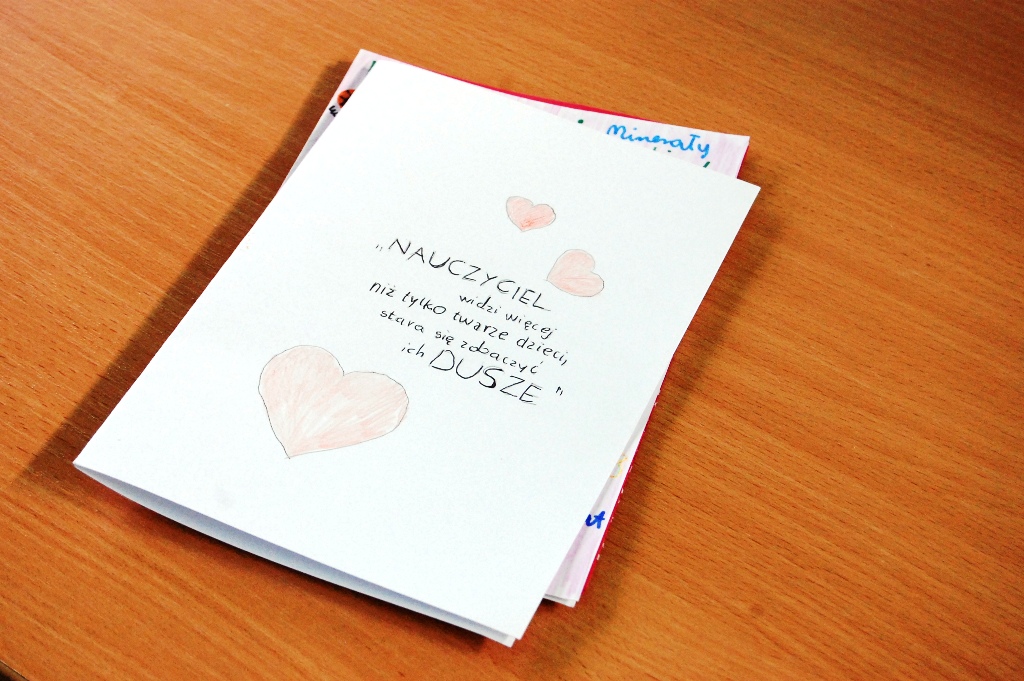 Minerały
„NAUCZYCIEL
widzi więcej
niż tylko twarze dzieci,
stara się zobaczyć
ich DUSZE"